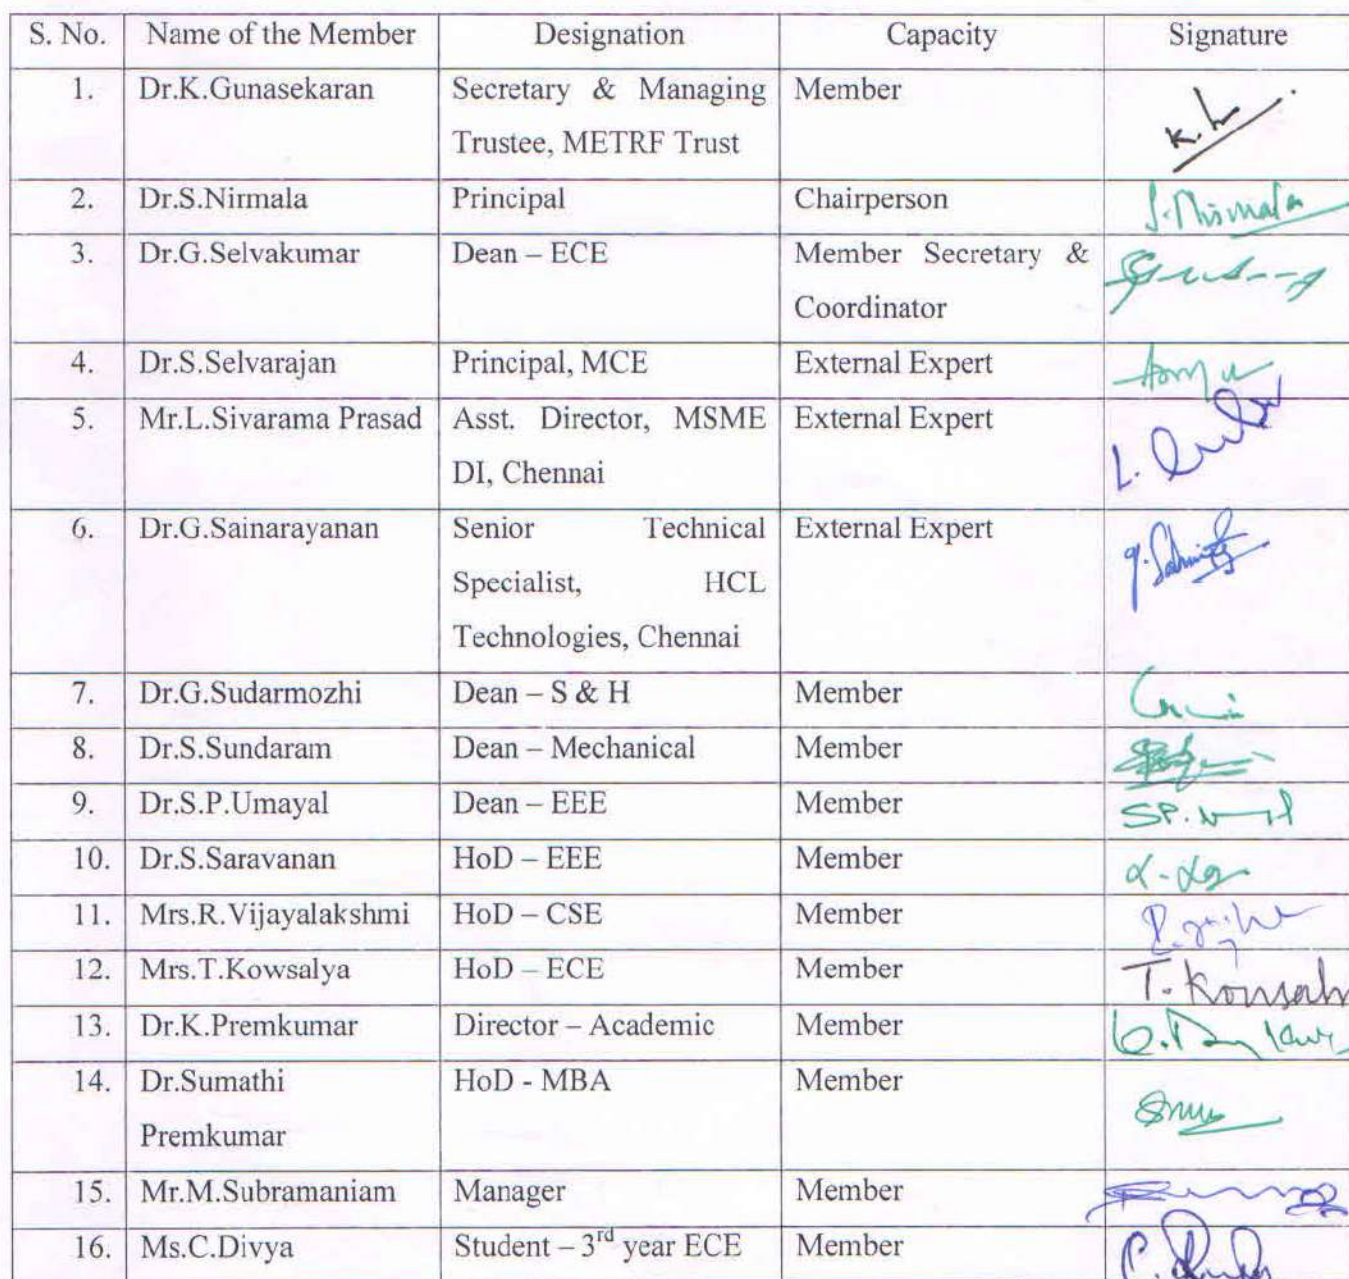 S. No. Name of the Member Designation Capacity Signature
1. Dr.K.Gunasekaran Secretary & Managing Member
Trustee, METRF Trust
2. Dr.S.Nirmala Principal Chairperson S.Nirmala
3. Dr.G.Selvakumar Dean – ECE Member Secretary &
Coordinator
4. Dr.S.Selvarajan Principal, MCE External Expert
5. Mr.L.Sivarama Prasad Asst. Director, MSME External Expert
DI, Chennai
6. Dr.G.Sainarayanan Senior Technical External Expert
Specialist, HCL
Technologies, Chennai
7. Dr.G.Sudarmozhi Dean – S & H Member
8. Dr.S.Sundaram Dean – Mechanical Member
9. Dr.S.P.Umayal Dean – EEE Member
10. Dr.S.Saravanan HoD – EEE Member
11. Mrs.R.Vijayalakshmi HoD – CSE Member
12. Mrs.T.Kowsalya HoD – ECE Member
13. Dr.K.Premkumar Director – Academic Member
14. Dr.Sumathi HoD - MBA Member
Premkumar
15. Mr.M.Subramaniam Manager Member
16. Ms.C.Divya Student – 3rd year ECE Member